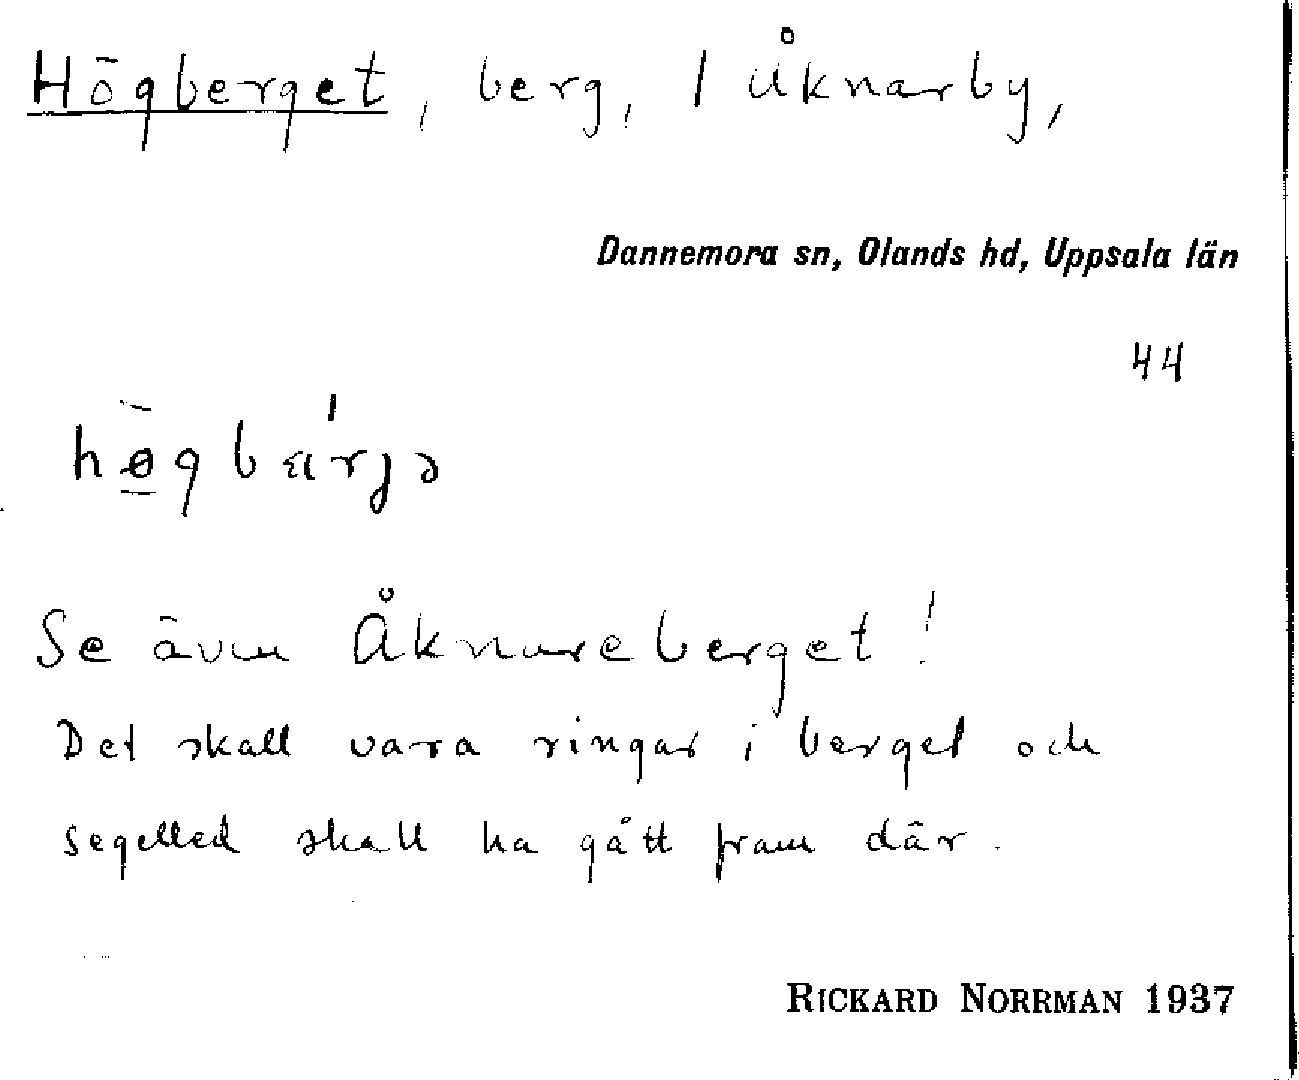 Högberget, berg, 1 Åknarby,
Dannemora sn, Olands hd, Uppsala län
44
hø̱̄gbá̈rjə
Se även Åknareberget!
Det skall vara ringar i berget och
segelled skall ha gått fram där.
RICKARD NORRMAN 1937